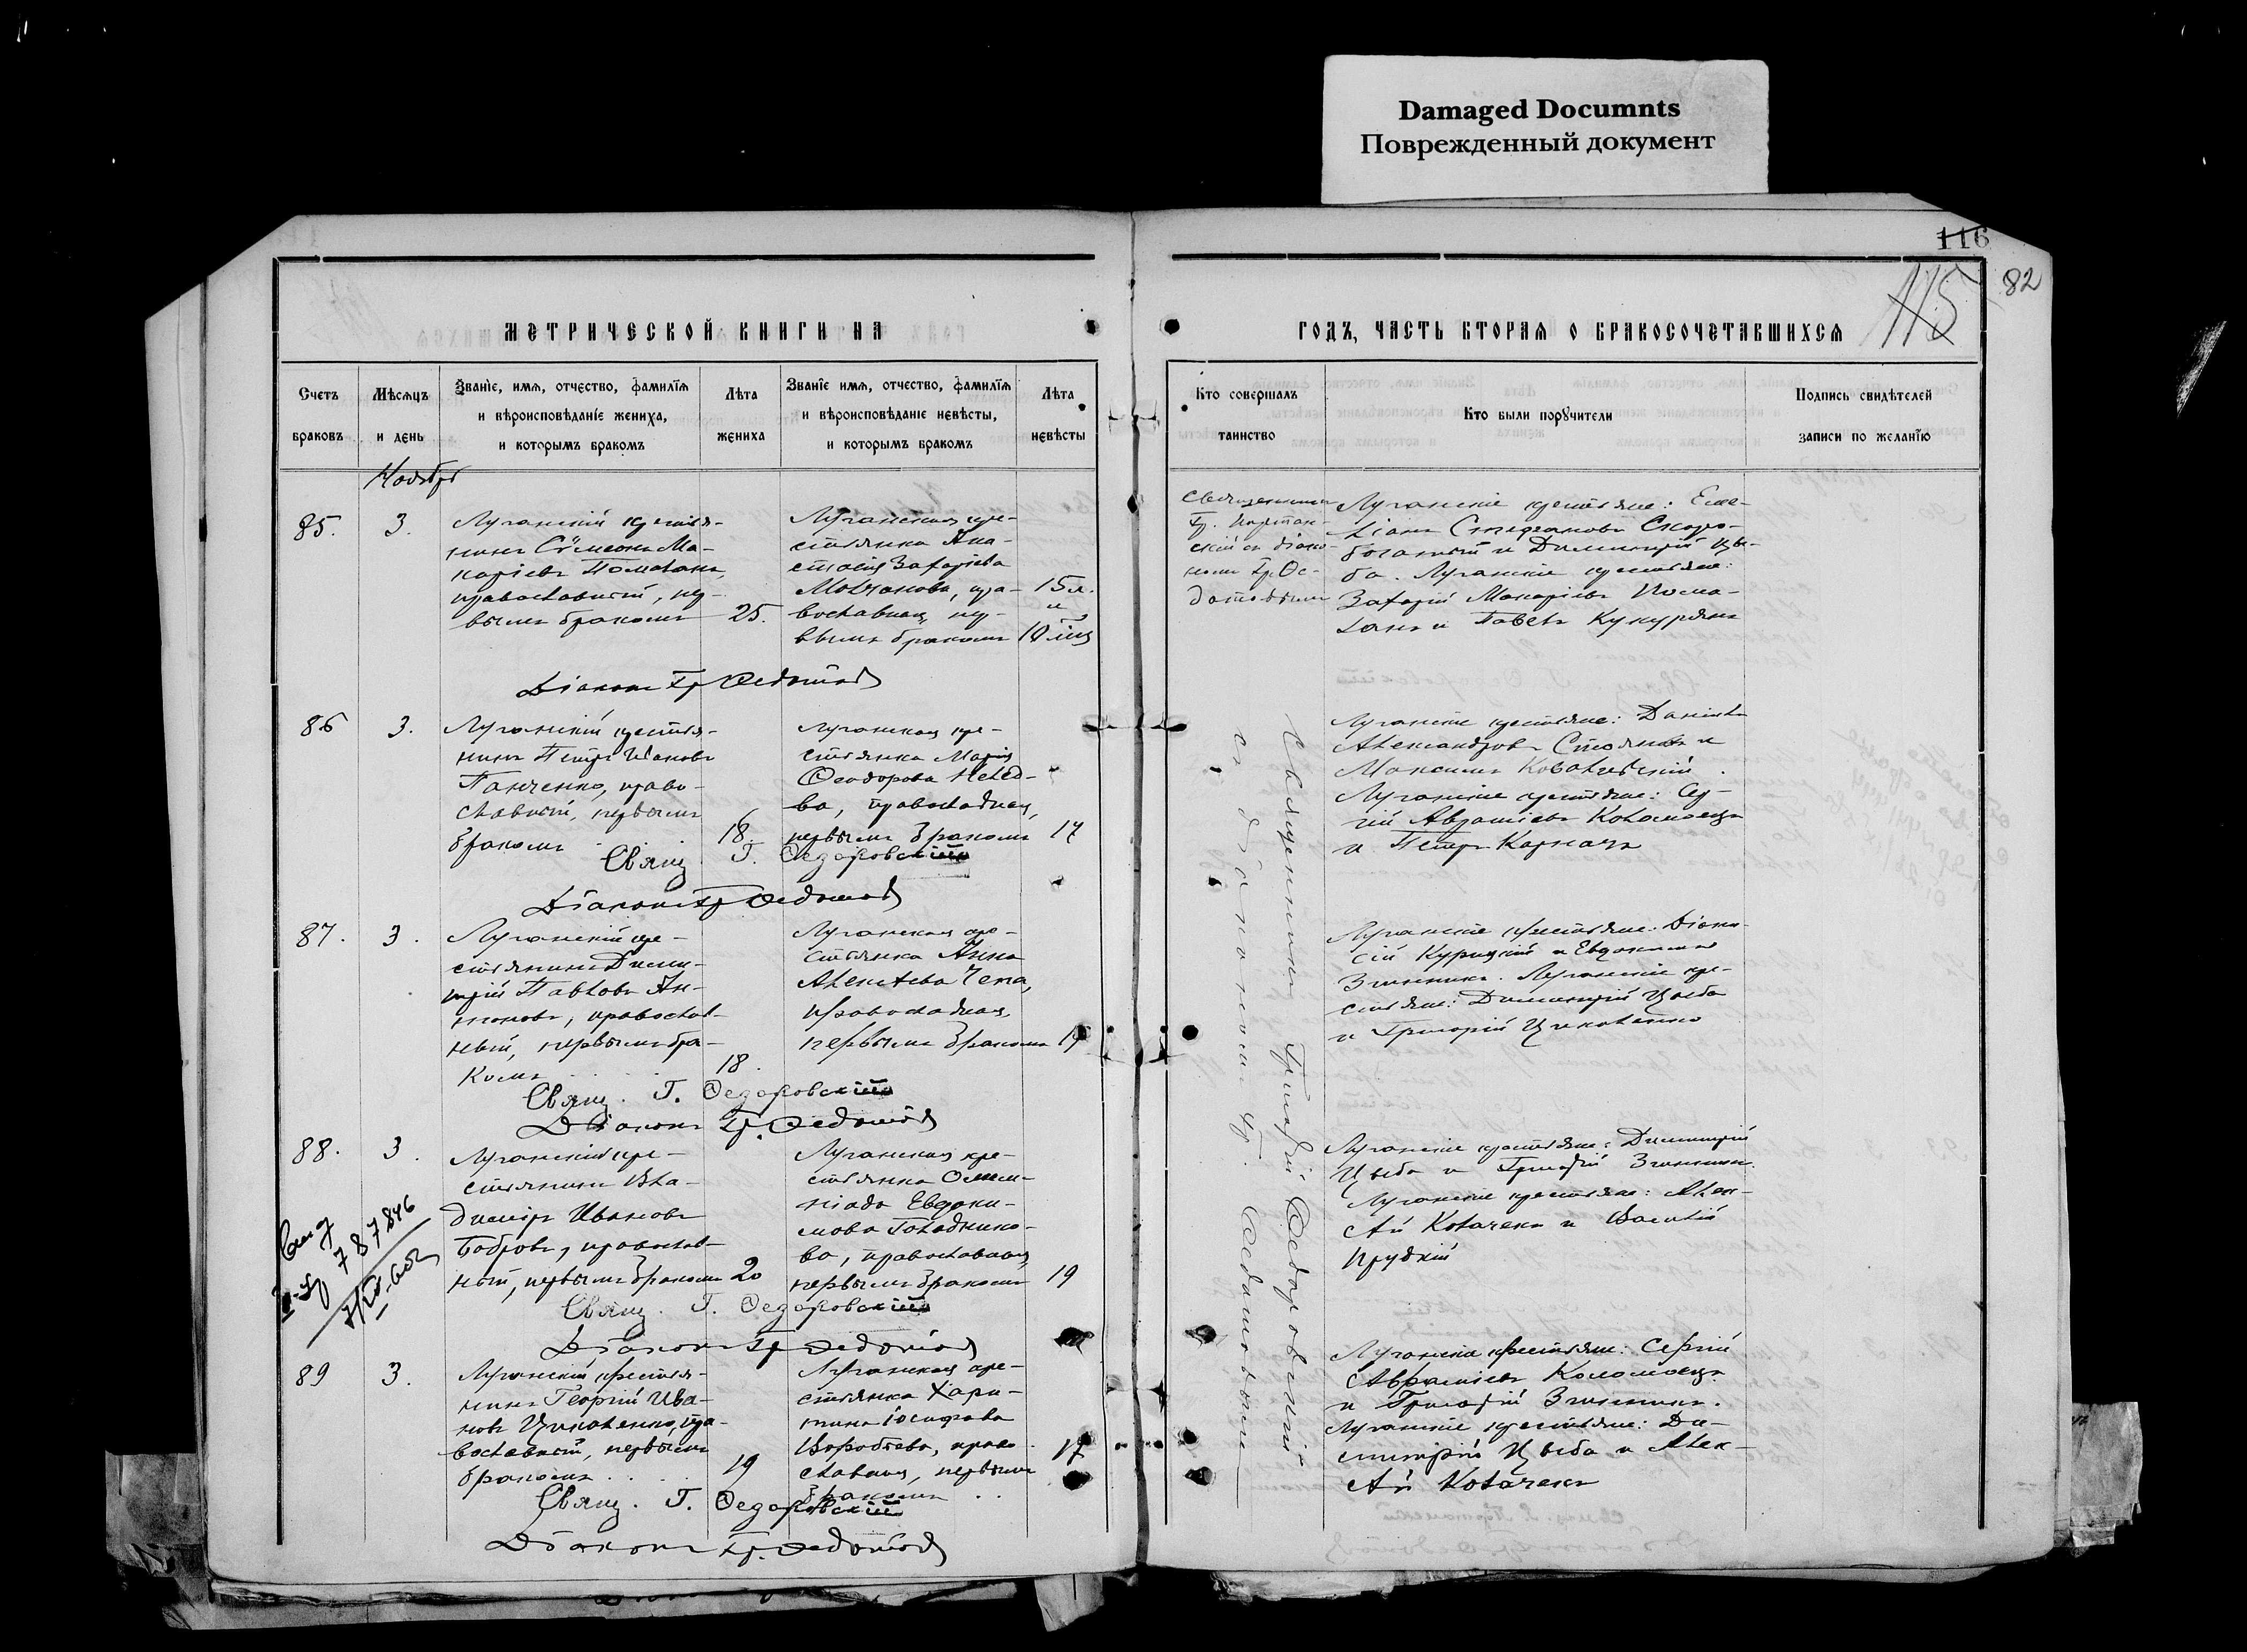 Damaged Documnts
Поврежденный документ
116
115
82
МЕТРИЧЕСКОЙ КНИГИ НА
ГОДЪ, ЧАСТЬ ВТОРАЯ О БРАКОСОЧЕТАВШИХСЯ
Счетъ
браковъ
Мѣсяцъ
и день
Званіе, имя, отчество, фамилія
и вѣроисповѣданіе жениха,
и которымъ бракомъ
Лѣта
жениха
Званіе имя, отчество, фамилія
и вѣроисповѣданіе невѣсты,
и которымъ бракомъ
Лѣта
невѣсты
Кто совершалъ
таинство
Кто были поручители
Подпись свидѣтелей
записи по желанію
Ноябрь
85.
3.
Луганскій крестья-
нинъ Сѵмеонъ Ма-
каріевъ
православный, пер-
вымъ бракомъ
25.
Луганская кре-
стьянка Ана-
стасія Захаріева
Молчанова, пра-
вославная, пер-
вымъ бракомъ
15 л.
и
10 мц
Священникъ
Гр.
скій съ діако-
номъ Гр. Ѳе-
дотовымъ
Луганскіе крестьяне: Еме-
ліанъ Стефановъ Скоро-
богатый и Димитрій Цы-
ба. Луганскіе крестьяне:
Захарій Макаріевъ
и Павелъ
Діаконъ Гр Ѳедотовъ
86
3.
Луганскій крестья-
нинъ Петръ Іоановъ
Панченко, право-
славный, первымъ
бракомъ
18.
Луганская кре-
стьянка Марія
Ѳеодорова
ва, православная,
первымъ бракомъ
17
Луганскіе крестьяне: Даніилъ
Александровъ Стояновъ и
Максимъ Ковалевскій.
Луганскіе крестьяне: Сер-
гій Авраміевъ Коломоецъ
и Петръ Карначъ
Свящ. Г. Ѳедоровскій
Діаконъ Гр Ѳедотовъ
87.
3.
Луганскій кре-
стьянинъ Дими-
трій Павловъ Ан-
тоновъ, православ-
ный, первымъ бра-
комъ
18.
Луганская кре-
стьянка Анна
Алексѣева Чепа,
православная,
первымъ бракомъ
19
Луганскіе крестьяне: Діони-
сій Курицкій и Евдокимъ
Зинникъ. Луганскіе кре-
стьяне: Димитрій Цыба
и Григорій Циковенко
Свящ. Г. Ѳедоровскій
Діаконъ Гр. Ѳедотовъ
88.
3.
Луганскій кре-
стьянинъ Вла-
диміръ Ивановъ
Бобровъ, православ-
ный, первымъ бракомъ
20
Луганская кре-
стьянка Олим-
піада Евдоки-
мова Голаднико-
ва, православная,
первымъ бракомъ
19
Луганскіе крестьяне: Димитрій
Цыба и Григорій Зинникъ.
Луганскіе крестьяне: Алек-
сѣй Ковачекъ и Василій
Прудкій
787846
Свящ. Г. Ѳедоровскій
Діаконъ Гр Ѳедотовъ
89
3.
Луганскій крестья-
нинъ Георгій Ива-
новъ Циковенко, пра-
вославный, первымъ
бракомъ
19
Луганская кре-
стьянка Хари-
тина Іосифова
Воробьева, право-
славная, первымъ
бракомъ
17
Луганскіе крестьяне: Сергій
Авраміевъ Коломоецъ
и Григорій Зинникъ.
Луганскіе крестьяне: Ди-
митрій Цыба и Алек-
сѣй Ковачекъ
Свящ. Г. Ѳедоровскій
Діаконъ Гр. Ѳедотовъ
Священникъ Григорій Ѳедоровскій
съ діакономъ Гр. Ѳедотовымъ